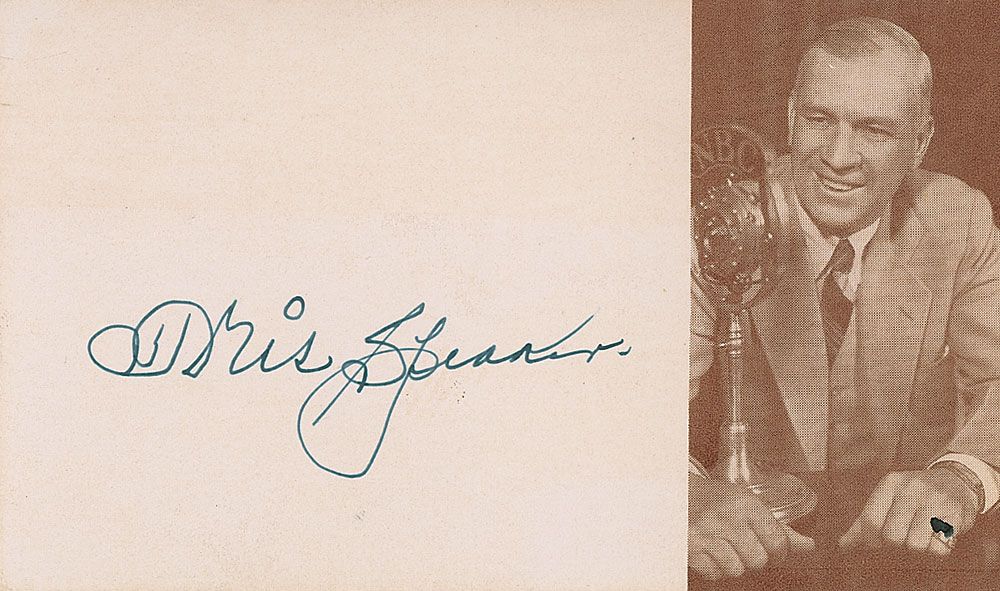 Tris Speaker.
NBC